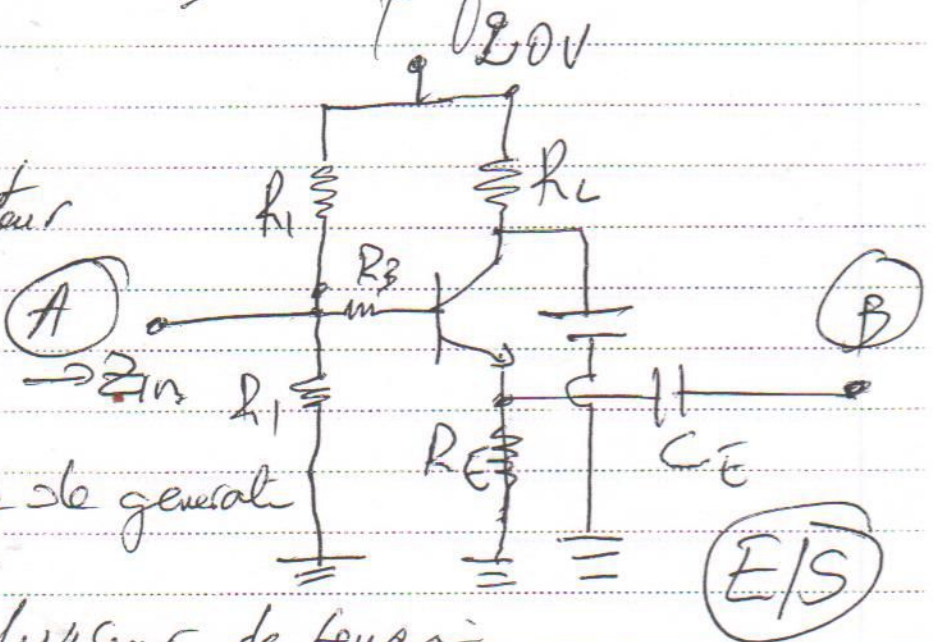 20V
R1
RL
R3
A
B
→ Zin
R1
RE
CE
de generat
E/S
de